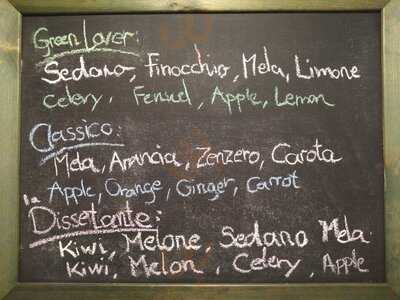 Green Lover:
Sedano, Finocchio, Mela, Limone
celery, Fennel, Apple, Lemon
Classico:
Mela, Arancia, Zenzero, Carota
Apple, Orange, Ginger, Carrot
la Dissetante:
Kiwi, Melone, Sedano Mela
Kiwi, Melon, Celery, Apple